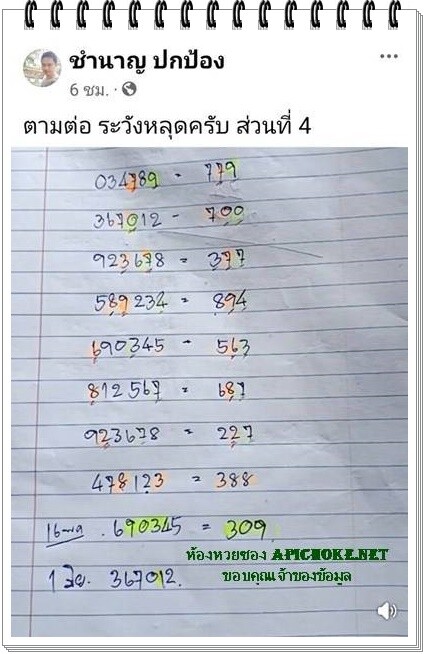 ชำนาญ ปกป้อง
6 ชม. ·
ตามต่อ ระวังหลุดครับ ส่วนที่ 4
034789 - 779
367012 - 700
923678 = 377
589234 = 894
690345 - 563
812567 = 687
923678 = 227
478123 = 388
16 พค . 690345 = 309.
ห้องหวยซอง APICHOKE.NET
1 มิย. 367012.
ขอบคุณเจ้าของข้อมูล